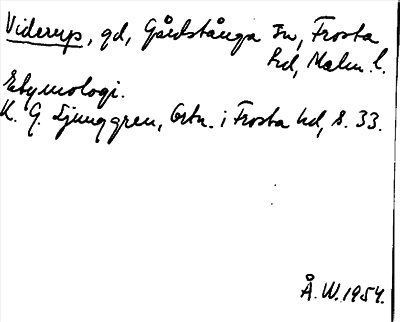 Viderup, gd, Gårdstånga sn, Frosta
hd, Malm. l.
Etymologi.
K. G. Ljunggren, Ortn. i Frosta hd, s. 33.
Å. W. 1954.